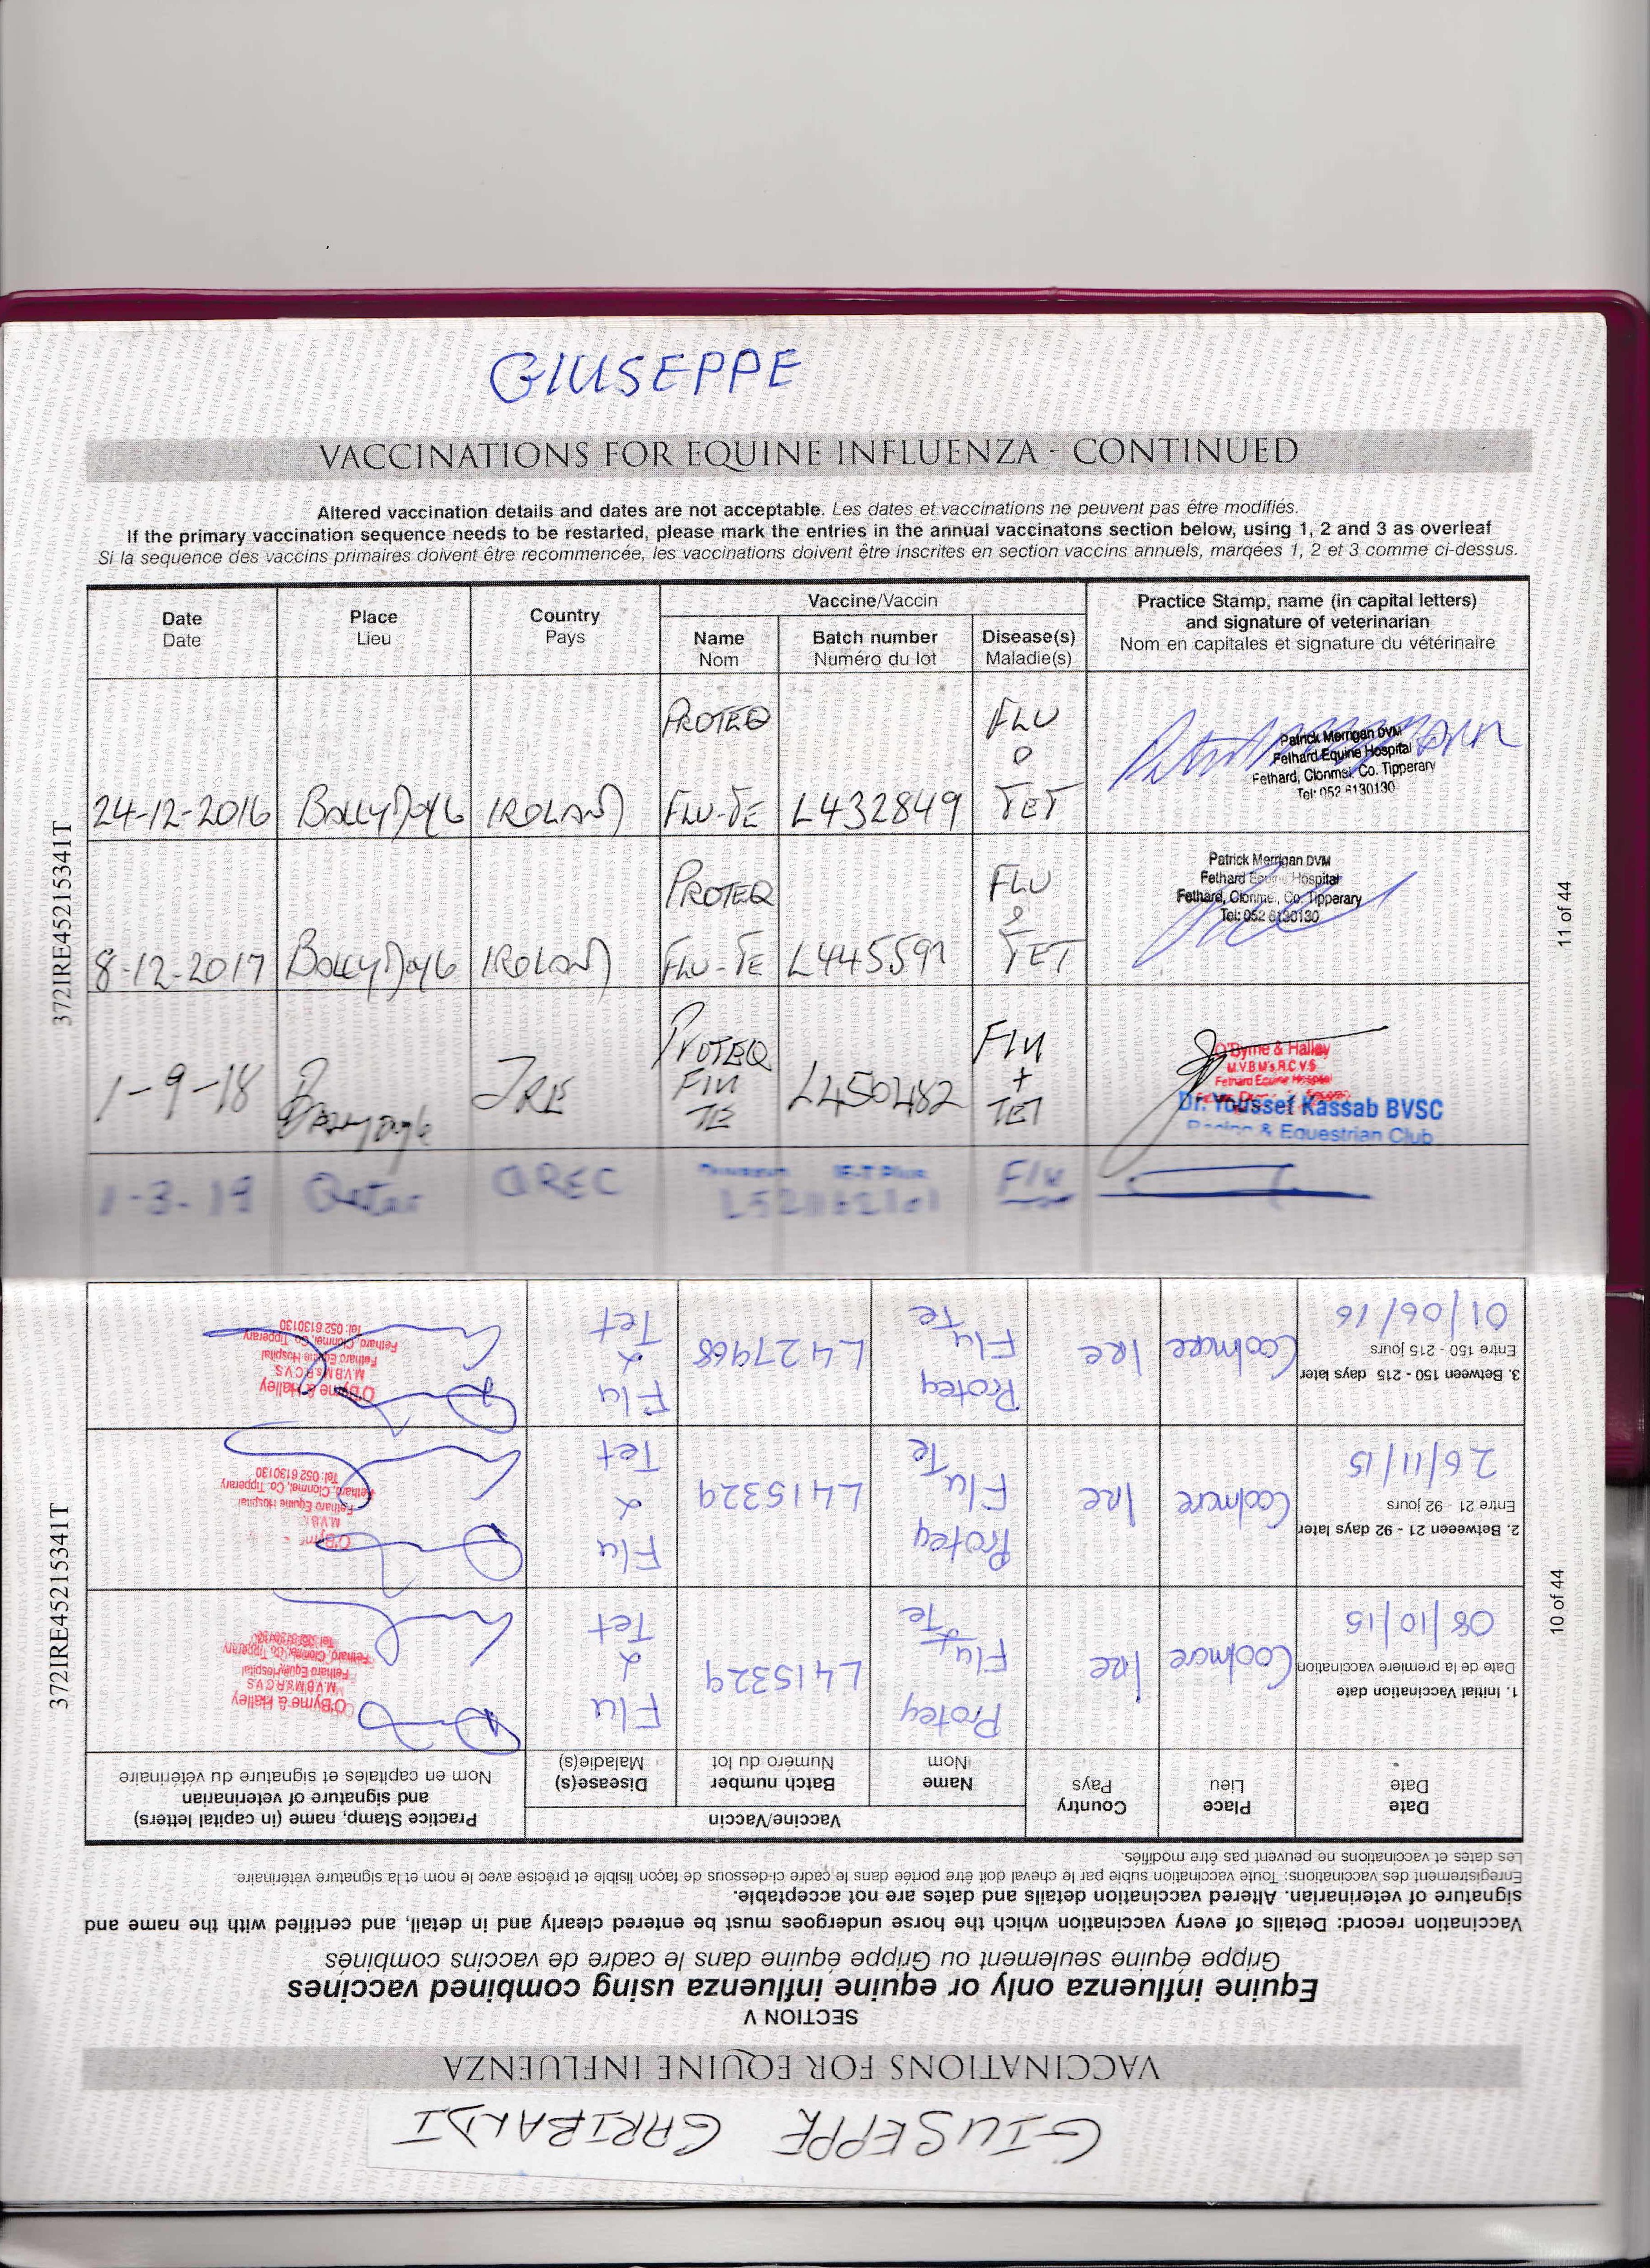 GIUSEPPE
VACCINATIONS FOR EQUINE INFLUENZA - CONTINUED
Altered vaccination details and dates are not acceptable. Les dates et vaccinations ne peuvent pas être modifiés.
If the primary vaccination sequence needs to be restarted, please mark the entries in the annual vaccinatons section below, using 1, 2 and 3 as overleaf
Si la sequence des vaccins primaires doivent être recommencée, les vaccinations doivent être inscrites en section vaccins annuels, marqées 1, 2 et 3 comme ci-dessus.
Date
Date
Place
Lieu
Country
Pays
Vaccine/Vaccin
Name
Nom
Batch number
Numéro du lot
Disease(s)
Maladie(s)
Practice Stamp, name (in capital letters)
and signature of veterinarian
Nom en capitales et signature du vétérinaire
24-12-2016
BALLYDOYLE
IRELAND
PROTEQ
FLU-TE
L432849
FLU
&
TET
Patrick Merrigan DVM
Fethard Equine Hospital
Fethard, Clonmel, Co. Tipperary
Tel: 052 6130130
8-12-2017
BALLYDOYLE
IRELAND
PROTEQ
FLU-TE
L445591
FLU
&
TET
Patrick Merrigan DVM
Fethard Equine Hospital
Fethard, Clonmel, Co. Tipperary
Tel: 052 6130130
1-9-18
Ballydoyle
IRE
PROTEQ
FLU
TE
L450482
FLU
+
TET
O'Byrne & Halley
M.V.B M's R.C.V.S
Fethard Equine Hospital
Dr. Youssef Kassab BVSC
Racing & Equestrian Club
1-3-19
Qatar
QREC
IE-T Plus
Flu
372IRE45215341T
11 of 44
GIUSEPPE GARIBALDI
VACCINATIONS FOR EQUINE INFLUENZA
SECTION V
Equine influenza only or equine influenza using combined vaccines
Grippe équine seulement ou Grippe équine dans le cadre de vaccins combinés
Vaccination record: Details of every vaccination which the horse undergoes must be entered clearly and in detail, and certified with the name and
signature of veterinarian. Altered vaccination details and dates are not acceptable.
Enregistrement des vaccinations: Toute vaccination subie par le cheval doit être portée dans le cadre ci-dessous de façon lisible et précise avec le nom et la signature vétérinaire.
Les dates et vaccinations ne peuvent pas être modifiés.
Date
Date
Place
Lieu
Country
Pays
Vaccine/Vaccin
Name
Nom
Batch number
Numéro du lot
Disease(s)
Maladie(s)
Practice Stamp, name (in capital letters)
and signature of veterinarian
Nom en capitales et signature du vétérinaire
1. Initial Vaccination date
Date de la première vaccination
08/10/15
Coolmore
Ire
Proteq
Flu
Te
L415329
Flu
&
Tet
O'Byrne & Halley
M.V.B M's R.C.V.S
Fethard Equine Hospital
Fethard, Clonmel, Co. Tipperary
2. Betweeen 21 - 92 days later
Entre 21 - 92 jours
26/11/15
Coolmore
Ire
Proteq
Flu
Te
L415329
Flu
&
Tet
Fethard Equine Hospital
Fethard, Clonmel, Co. Tipperary
Tel: 052 6130130
3. Between 150 - 215 days later
Entre 150 - 215 jours
01/06/16
Coolmore
Ire
Proteq
Flu
Te
L427468
Flu
&
Tet
O'Byrne & Halley
M.V.B M's R.C.V.S
Fethard Equine Hospital
Fethard, Clonmel, Co. Tipperary
Tel: 052 6130130
372IRE45215341T
10 of 44